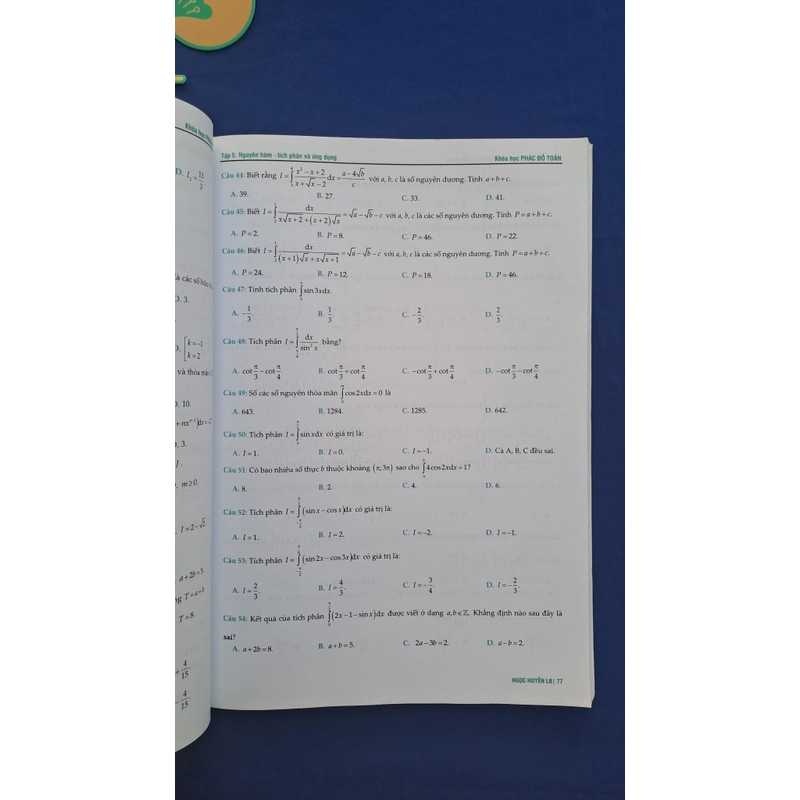 Khóa học PHÁ
D. I₁ = 13/3.
là các số hữu
D. 3.
D. [k = −1
k = 2
và thỏa mãn
D. 10.
D. 3.
m ≥ 0.
I = 2 − √2.
a + 2b = 5.
T = a + b
T = 8.
+ 4/15.
− 4/15.
Tập 5: Nguyên hàm - tích phân và ứng dụng Khóa học PHÁC ĐỒ TOÁN
Câu 44: Biết rằng I = ∫ (x² − x + 2)/(x + √x − 2) dx = (a − 4√b)/c với a, b, c là số nguyên dương. Tính a + b + c.
A. 39. B. 27. C. 33. D. 41.
Câu 45: Biết I = ∫ dx/(x√x + 2 + (x + 2)√x) = √a − √b − c với a, b, c là các số nguyên dương. Tính P = a + b + c.
A. P = 2. B. P = 8. C. P = 46. D. P = 22.
Câu 46: Biết I = ∫ dx/((x + 1)√x + x√x + 1) = √a − √b − c với a, b, c là các số nguyên dương. Tính P = a + b + c.
A. P = 24. B. P = 12. C. P = 18. D. P = 46.
Câu 47: Tính tích phân ∫ sin 3xdx.
A. −1/3. B. 1/3. C. −2/3. D. 2/3.
Câu 48: Tích phân I = ∫ dx/sin² x bằng?
A. cot π/3 − cot π/4 B. cot π/3 + cot π/4 C. −cot π/3 + cot π/4 D. −cot π/3 − cot π/4
Câu 49: Số các số nguyên thỏa mãn ∫ cos 2xdx = 0 là
A. 643. B. 1284. C. 1285. D. 642.
Câu 50: Tích phân I = ∫ sin xdx có giá trị là:
A. I = 1. B. I = 0. C. I = −1. D. Cả A, B, C đều sai.
Câu 51: Có bao nhiêu số thực b thuộc khoảng (π; 3π) sao cho ∫ 4cos 2xdx = 1?
A. 8. B. 2. C. 4. D. 6.
Câu 52: Tích phân I = ∫ (sin x − cos x)dx có giá trị là:
A. I = 1. B. I = 2. C. I = −2. D. I = −1.
Câu 53: Tích phân I = ∫ (sin 2x − cos 3x)dx có giá trị là:
A. I = 2/3. B. I = 4/3. C. I = −3/4. D. I = −2/3.
Câu 54: Kết quả của tích phân ∫ (2x − 1 − sin x)dx được viết ở dạng a, b ∈ ℤ. Khẳng định nào sau đây là
sai?
A. a + 2b = 8. B. a + b = 5. C. 2a − 3b = 2. D. a − b = 2.
NGỌC HUYỀN LB | 77